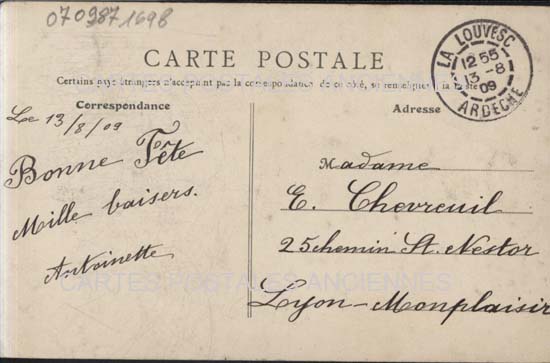 070987 1698
CARTE POSTALE
Certains pays étrangers n'acceptent pas la correspondance de ce côté, se renseigner à la Poste
Correspondance
Adresse
LA LOUVESC
12 55
13 -8
09
ARDECHE
Le 13/8/09
Bonne Fête
Mille baisers.
Antoinette
Madame
E. Chevreuil
25 chemin St. Nestor
Lyon-Monplaisir
CARTES POSTALES ANCIENNES
CARTES POSTALES ANCIENNES